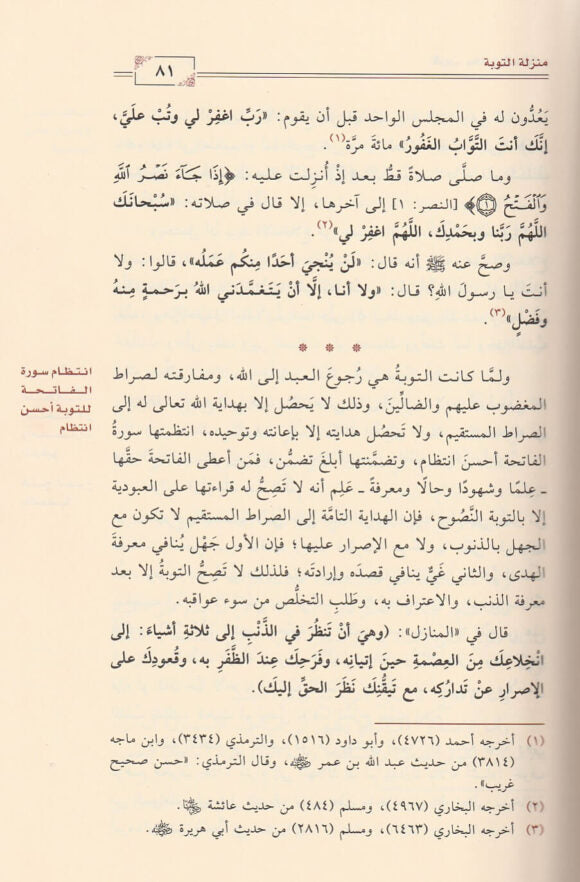 منزلة التوبة
٨١
يَعُدُّون له في المجلس الواحد قبل أن يقوم: «ربِّ اغفِرْ لي وتُبْ علَيَّ،
إنَّك أنتَ التَّوَّابُ الغَفُورُ» مائةَ مرَّة(١).
وما صلَّى صلاةً قطُّ بعد إذْ أُنزِلت عليه: ﴿إِذَا جَآءَ نَصْرُ ٱللَّهِ
وَٱلْفَتْحُ ۝١﴾ [النصر: ١] إلى آخرها، إلا قال في صلاته: «سُبْحانَكَ
اللَّهُمَّ رَبَّنا وبحَمْدِكَ، اللَّهُمَّ اغفِرْ لي»(٢).
وصحَّ عنه ﷺ أنه قال: «لَنْ يُنْجيَ أحَدًا مِنكُم عَمَلُه»، قالوا: ولا
أنتَ يا رسولَ اللهِ؟ قال: «ولا أنا، إلَّا أنْ يَتَغمَّدَني اللهُ برَحمةٍ مِنهُ
وفَضْلٍ»(٣).
* * *
انتظام سورة
الفاتحة
للتوبة أحسن
انتظام
ولـمَّا كانت التوبةُ هي رُجوعَ العبد إلى الله، ومفارقته لصراط
المغضوب عليهم والضالِّينَ، وذلك لا يَحصُل إلا بهداية الله تعالى له إلى
الصراط المستقيم، ولا تَحصُل هدايته إلا بإعانته وتوحيده، انتظمتها سورةُ
الفاتحة أحسنَ انتظام، وتضمَّنتها أبلغَ تضمُّن، فمَن أعطى الفاتحةَ حقَّها
ـ عِلمًا وشهودًا وحالًا ومعرفةً ـ عَلِم أنه لا تَصِحُّ له قراءتها على العبودية
إلا بالتوبة النَّصُوح، فإن الهداية التامَّة إلى الصراط المستقيم لا تكون مع
الجهل بالذنوب، ولا مع الإصرار عليها؛ فإن الأول جَهْل يُنافي معرفةَ
الهدى، والثاني غَيٌّ ينافي قصدَه وإرادتَه؛ فلذلك لا تَصِحُّ التوبةُ إلا بعد
معرفة الذنب، والاعتراف به، وطلبِ التخلُّص من سوء عواقبه.
قال في «المنازل»: (وهيَ أنْ تَنظُرَ في الذَّنْبِ إلى ثلاثةِ أشياءَ: إلى
انْخِلاعِكَ مِنَ العِصْمةِ حينَ إتيانِه، وفَرَحِكَ عِندَ الظَّفَرِ به، وقُعودِكَ على
الإصرارِ عنْ تَدارُكِه، مع تَيقُّنِكَ نَظَرَ الحقِّ إليكَ).
(١) أخرجه أحمد (٤٧٢٦)، وأبو داود (١٥١٦)، والترمذي (٣٤٣٤)، وابن ماجه
(٣٨١٤) من حديث عبد الله بن عمر ﵄، وقال الترمذي: «حسن صحيح
غريب».
(٢) أخرجه البخاري (٤٩٦٧)، ومسلم (٤٨٤) من حديث عائشة ﵂.
(٣) أخرجه البخاري (٦٤٦٣)، ومسلم (٢٨١٦) من حديث أبي هريرة ﵁.